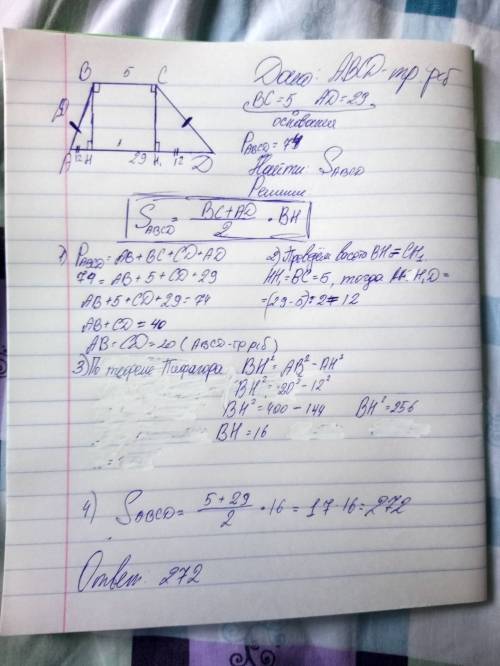 B 5 C
A 12 H 29 H₁ 12 D
Дано: ABCD-тр. р/б
BC=5 AD=29
основания
P_ABCD = 74
Найти: S_ABCD
Решение
S_ABCD = (BC+AD)/2 · BH
1) P_ABCD = AB+BC+CD+AD
74 = AB+5+CD+29
AB+5+CD+29=74
AB+CD=40
AB=CD=20 (ABCD-тр р/б)
2) Проведём высоты BH=CH₁
HH₁=BC=5, тогда AH=H₁D=
=(29-5):2=12
3) По теореме Пифагора BH²=AB²-AH²
BH²=20²-12²
BH²=400-144 BH²=256
BH=16
4) S_ABCD = (5+29)/2 · 16 = 17·16=272
Ответ: 272